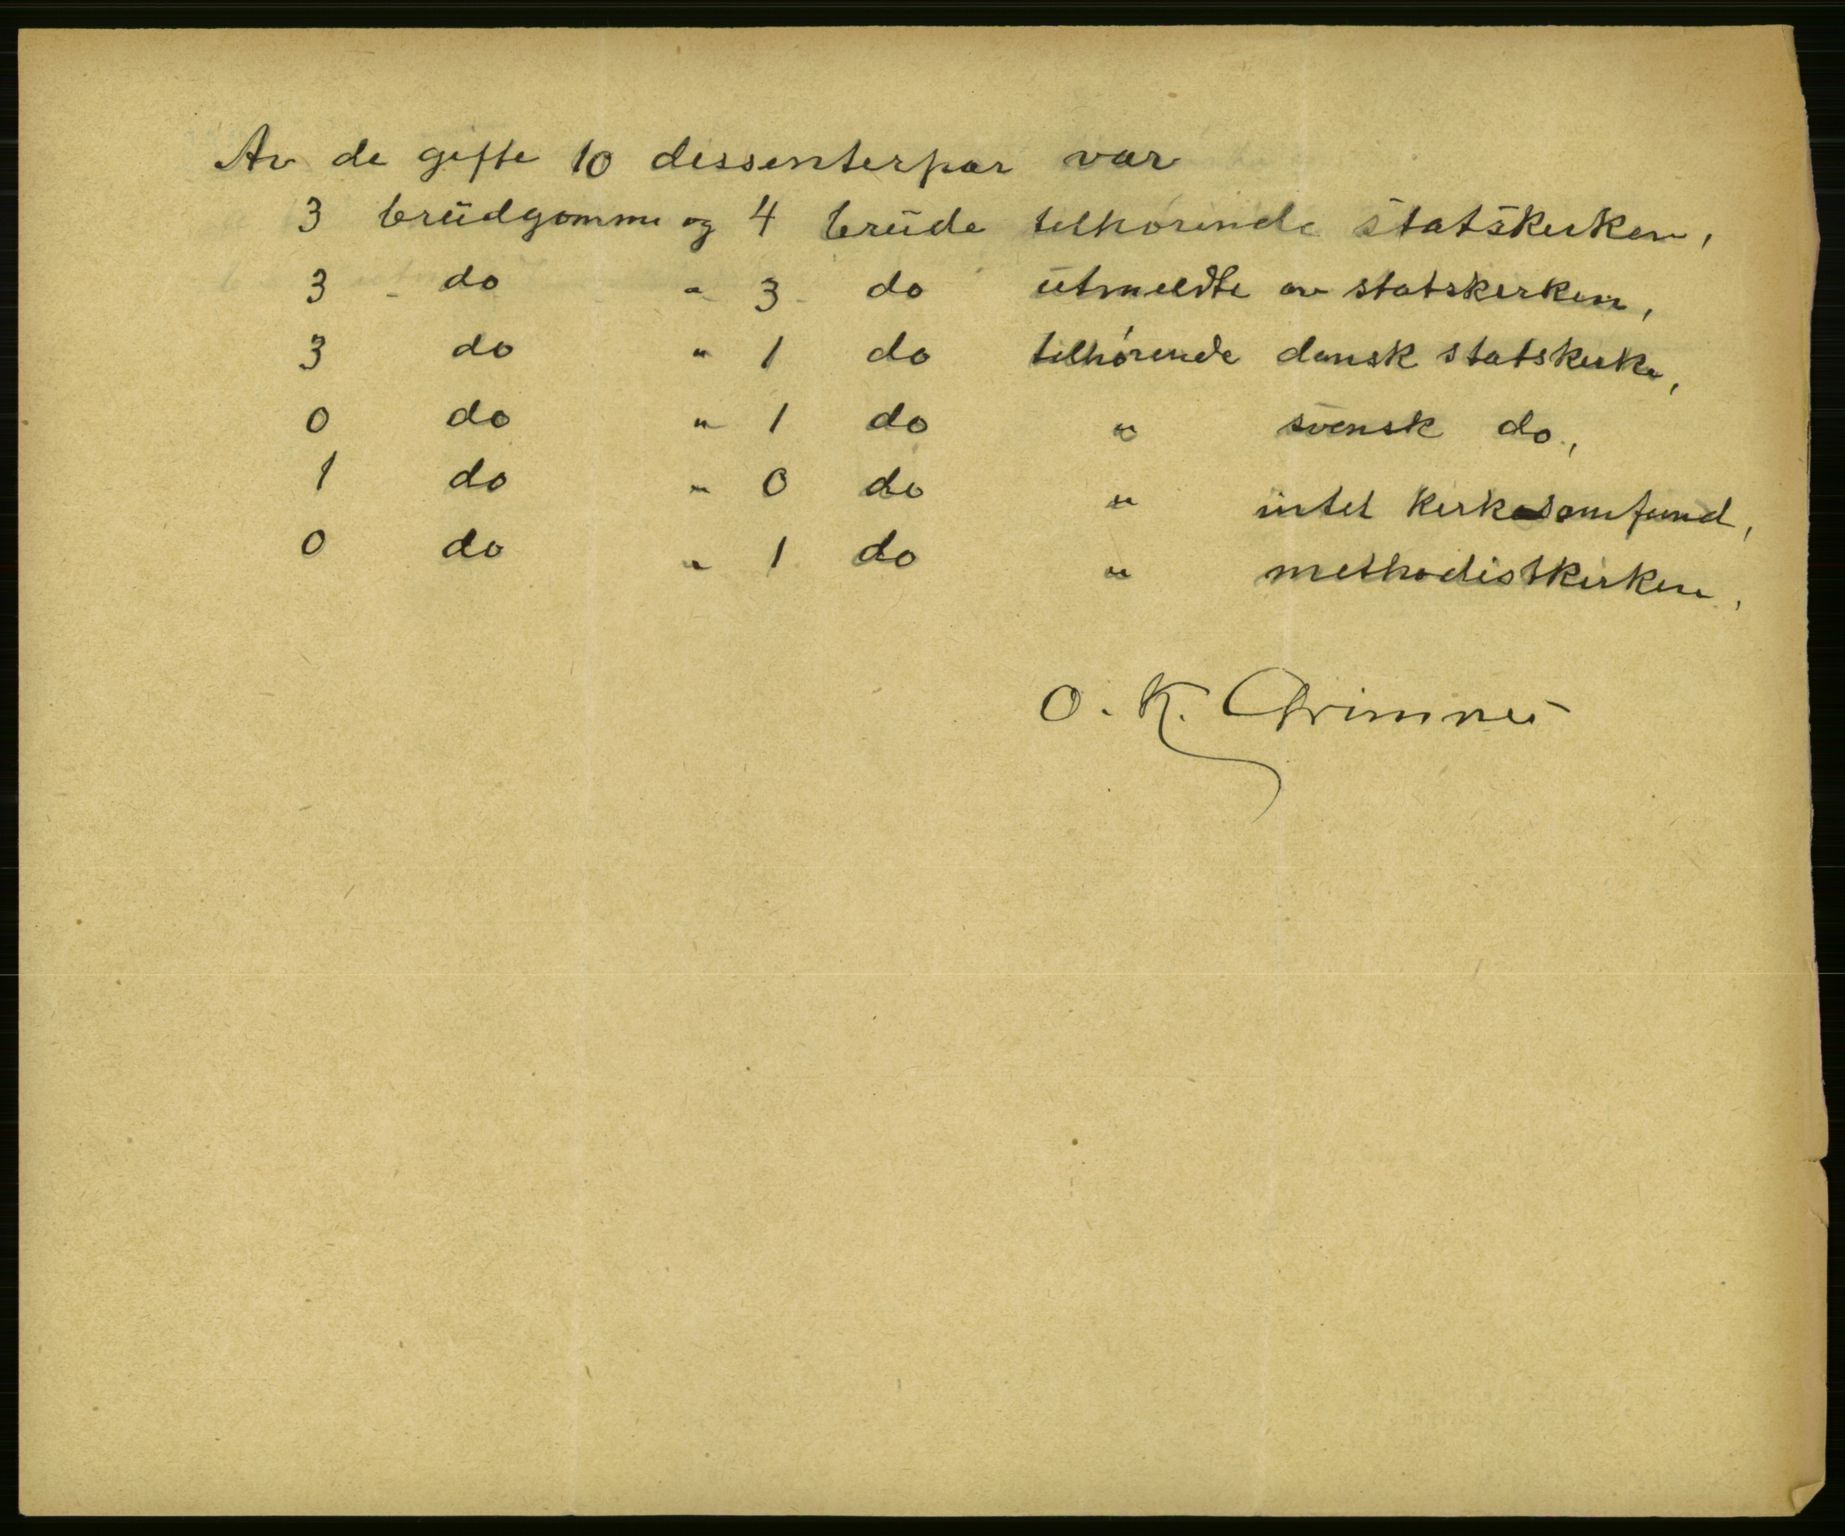 Av de gifte 10 dissenterpar var
3 brudgomme og 4 brude tilhørende statskirken,
3 do " 3 do utmeldte av statskirken,
3 do " 1 do tilhørende dansk statskirke,
0 do " 1 do " svensk do,
1 do " 0 do " intet kirkesamfund,
0 do " 1 do " methodistkirken,
O. K. Grimnes